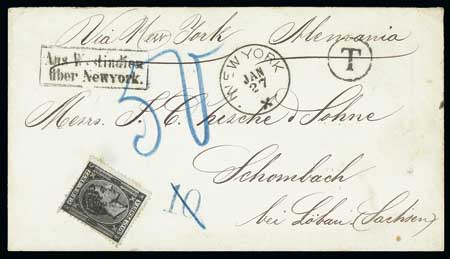 Via New York Alemania
Aus Westindien
über Newyork.
T
NEW YORK
JAN
27
50
Messrs. J. C. Hische & Sohne
Schombach
10
bei Löbau (Sachsen)